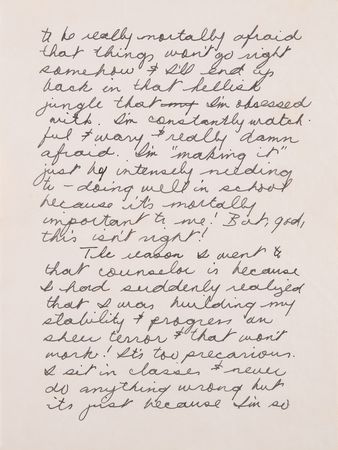 to be really mortally afraid
that things won't go right
somehow & I'll end up
back in that hellish
jungle that I'm obsessed
with. I'm constantly watch-
ful & wary & really damn
afraid. I'm "making it"
just by intensely needing
to - doing well in school
because it's mortally
important to me! But, god,
this isn't right!
The reason I went to
that counselor is because
I had suddenly realized
that I was building my
stability & progress on
sheer terror & that won't
work! It's too precarious.
I sit in classes & never
do anything wrong but
its just because I'm so